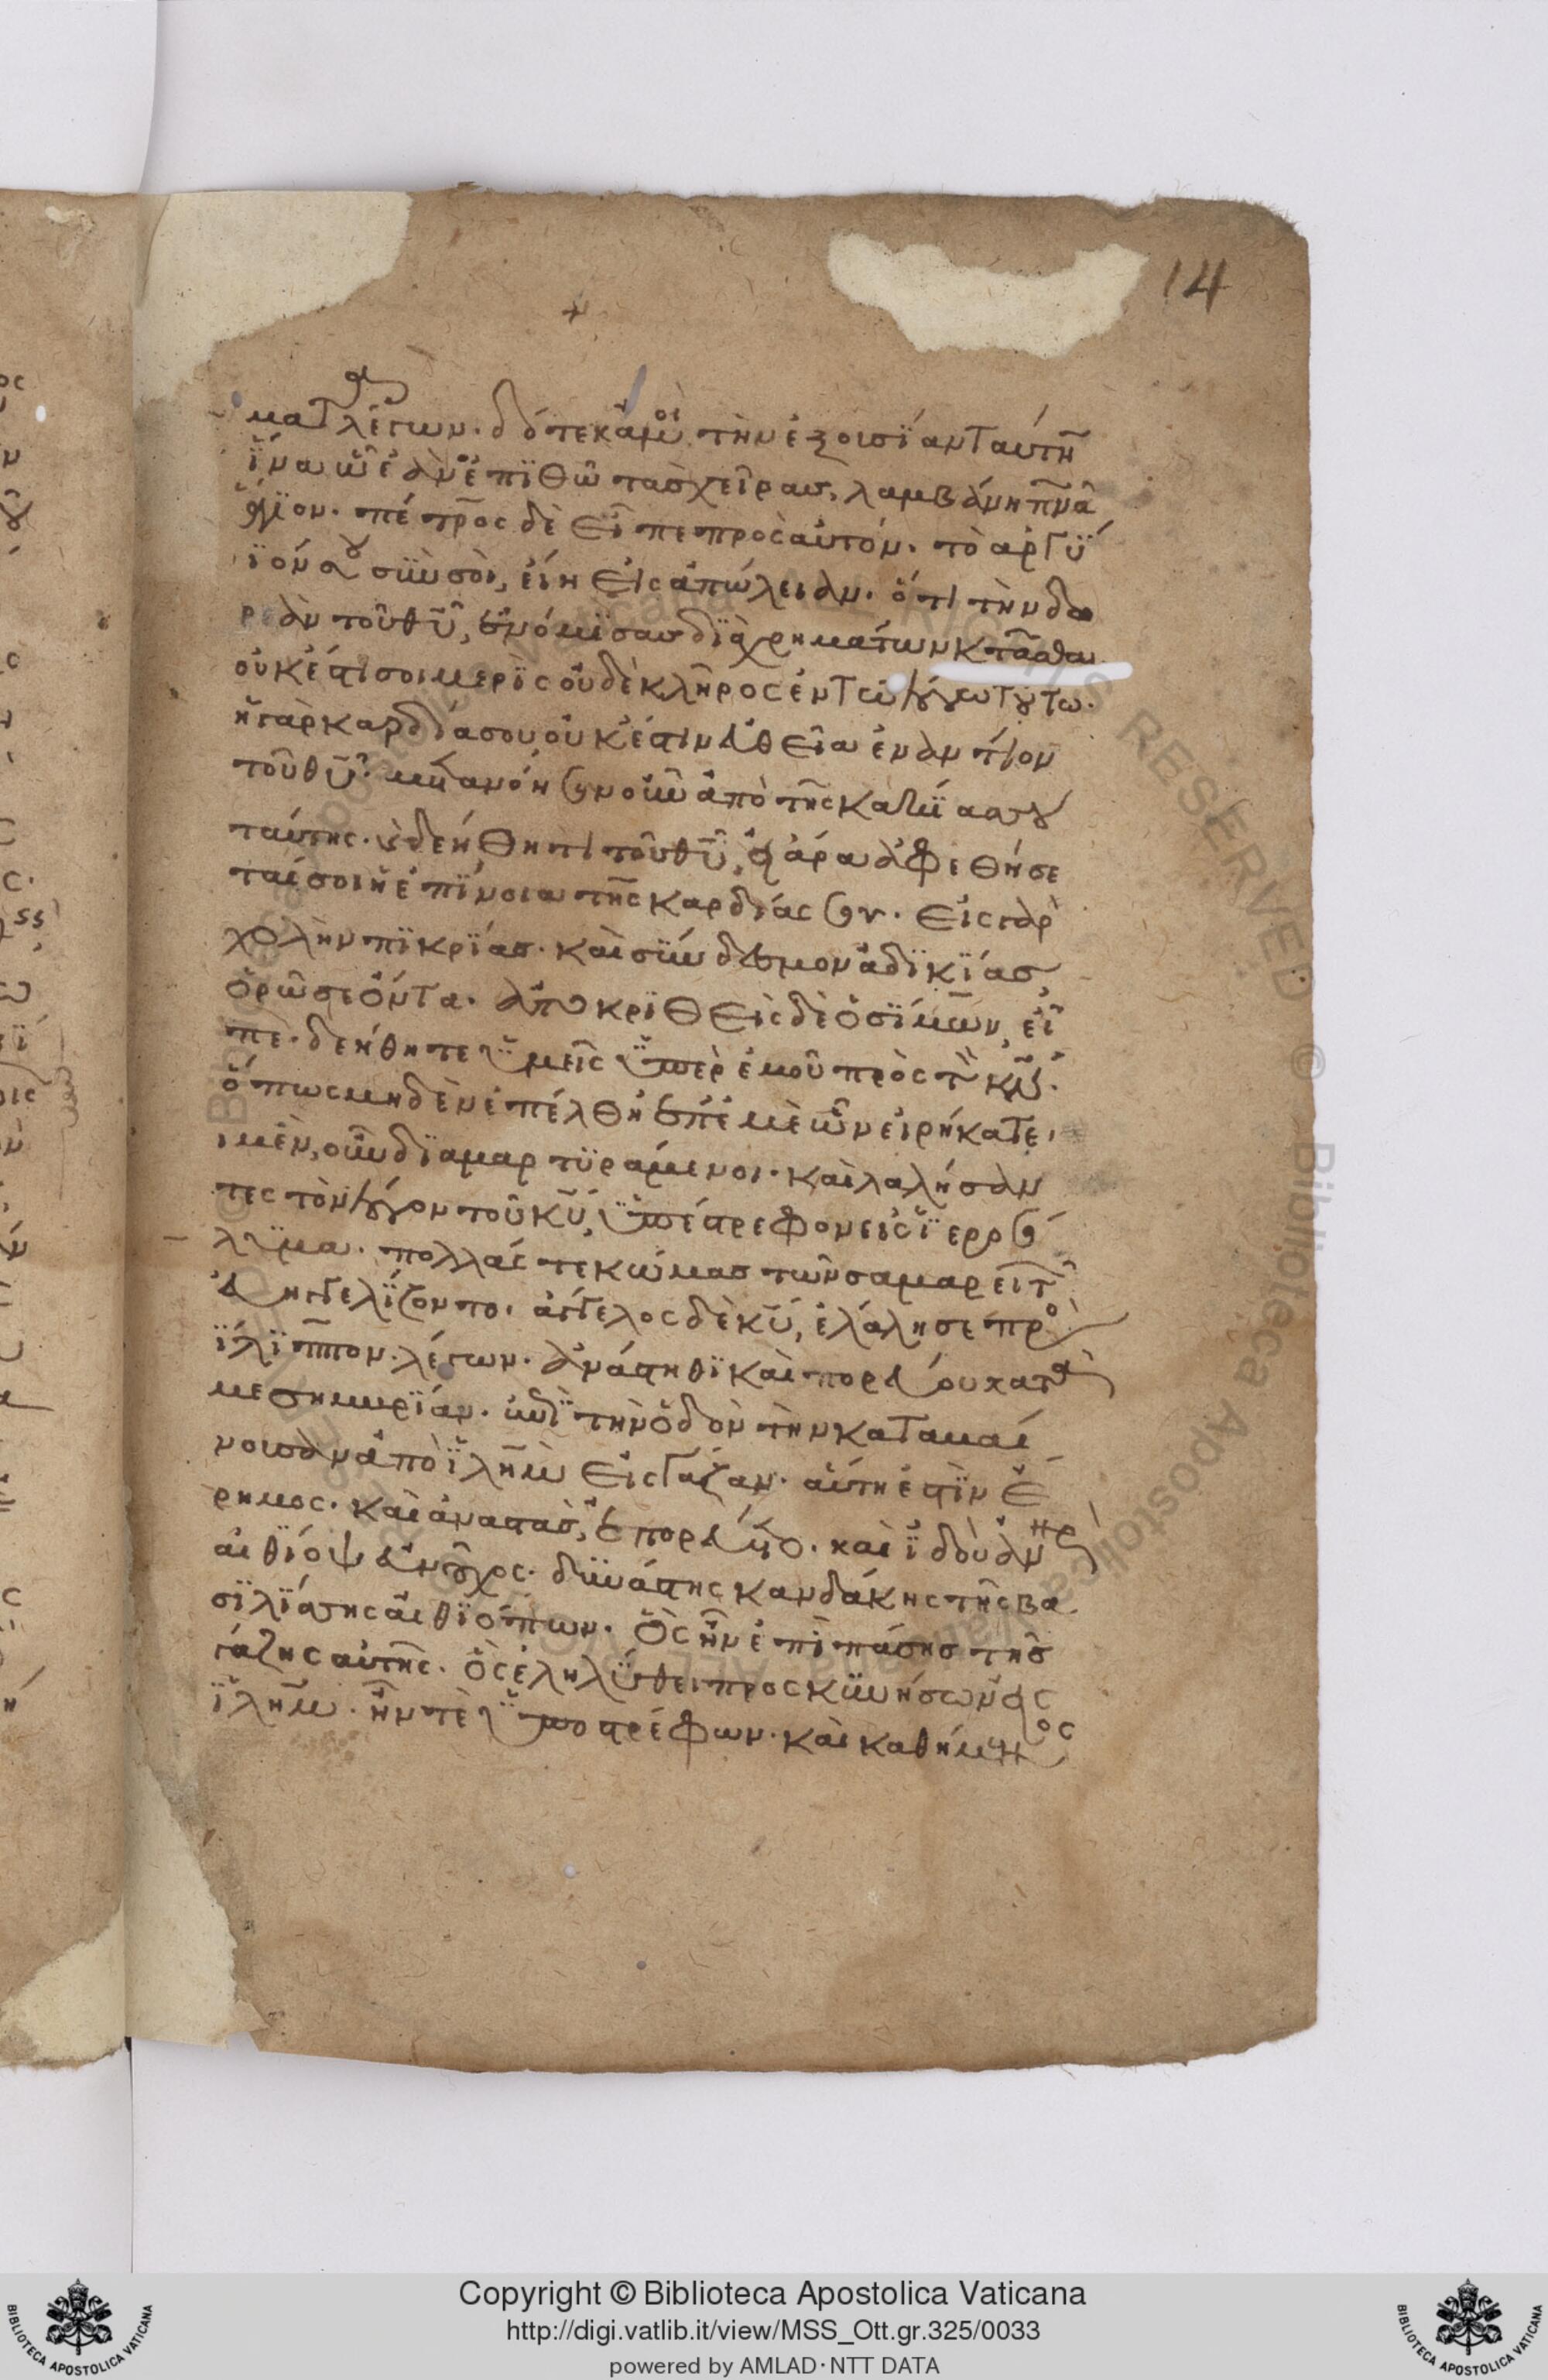 14
ματ(α) λέγων· δότε κἀμοὶ τὴν ἐξουσίαν ταύτη
ἵνα ᾧ ἐὰν ἐπιθῶ τὰς χεῖρας, λαμβάνη πνα
ἅγιον· πέτρος δὲ εἶπε πρὸς αὐτόν· τὸ ἀργύ
ιόν σου σὺν σοὶ, εἴη εἰς ἀπώλειαν· ὅτι τὴν δω
ρεὰν τοῦ θυ, ἐνόμισας διὰ χρημάτων κτᾶσθαι
οὐκ ἔστι σοι μερὶς οὐδὲ κλῆρος ἐν τῶ λόγω τούτω·
ἡ γὰρ καρδία σου οὐκ ἔστιν εὐθεῖα ἐναντίον
τοῦ θυ· μετανόησον οὖν ἀπὸ τῆς κακίας σου
ταύτης· καὶ δεήθητι τοῦ θυ, εἰ ἄρα ἀφεθήσε
ταί σοι ἡ ἐπίνοια τῆς καρδίας σου· εἰς γὰρ
χολὴν πικρίας· καὶ σύνδεσμον ἀδικίας,
ὁρῶ σε ὄντα· ἀποκριθεὶς δὲ ὁ σίμων, εἶ
πε· δεήθητε ὑμεῖς ὑπὲρ ἐμοῦ πρὸς τὸν κν·
ὅπως μηδὲν ἐπέλθη ἐπ' ἐμὲ ὧν εἰρήκατε·
ι μὲν οὖν διαμαρτυράμενοι· καὶ λαλήσαν
τες τὸν λόγον τοῦ κυ, ὑπέστρεφον εἰς ἱεροσό
λυμα· πολλάς τε κώμας τῶν σαμαρειτ
εὐηγγελίζοντο· ἄγγελος δὲ κυ, ἐλάλησε πρὸ
ίλιππον· λέγων· ἀνάστηθι καὶ πορεύου κατὰ
μεσημβρίαν· ἐπὶ τὴν ὁδὸν τὴν καταβαί
νουσαν ἀπὸ ἰλημ εἰς γάζαν· αὕτη ἐστὶν ἔ
ρημος· καὶ ἀναστὰς, ἐπορεύθη· καὶ ἰδοὺ ἀνὴρ
αἰθίοψ εὐνοῦχος· δυνάστης κανδάκης τῆς βα
σιλίσσης αἰθιόπων· ὃς ἦν ἐπὶ πάσης τῆς
γάζης αὐτῆς· ὃς ἐληλύθει προσκυνήσων εἰς
ἰλημ· ἦν τε ὑποστρέφων· καὶ καθήμενος
Copyright © Biblioteca Apostolica Vaticana
http://digi.vatlib.it/view/MSS_Ott.gr.325/0033
powered by AMLAD·NTT DATA